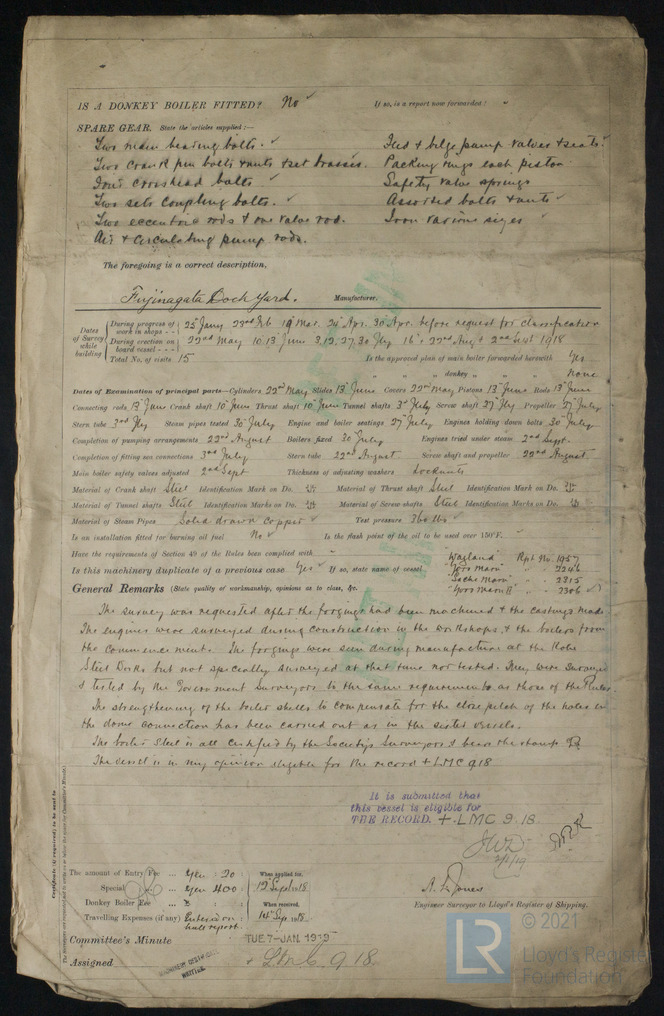 IS A DONKEY BOILER FITTED? No ✓ If so, is a report now forwarded? ✓
SPARE GEAR. State the articles supplied:—
Two main bearing bolts. ✓ Feed & bilge pump valves & seats. ✓
Two crank pin bolts & nuts & set brasses. Packing rings each piston
crosshead bolts ✓ Safety valve springs
Two sets coupling bolts. ✓ Assorted bolts & nuts ✓
Two eccentric rods & one valve rod. Iron various sizes ✓
Air & Circulating pump rods.
The foregoing is a correct description,
Fujinagata Dock Yard. Manufacturer.
Dates of Survey while building
During progress of work in shops - - 25 Jany 23rd Feb 19 Mar. 24 Apr. 30 Apr. before request for classification
During erection on board vessel - - - 22nd May 10. 13 June 3, 12, 27, 30 Jly 16 22nd Aug & 2nd Sept 1918
Total No. of visits 15 Is the approved plan of main boiler forwarded herewith Yes
" " " donkey " " " none
Dates of Examination of principal parts—Cylinders 22nd May Slides 13 June Covers 22nd May Pistons 13 June Rods 13 June
Connecting rods 13 June Crank shaft 10 June Thrust shaft 10 June Tunnel shafts 3rd July Screw shaft 27 Jly Propeller 27 July
Stern tube 3rd Jly Steam pipes tested 30 July Engine and boiler seatings 27 July Engines holding down bolts 30 July
Completion of pumping arrangements 22nd August Boilers fixed 30 July Engines tried under steam 2nd Sept.
Completion of fitting sea connections 3rd July Stern tube 22nd August Screw shaft and propeller 22nd August
Main boiler safety valves adjusted 2nd Sept Thickness of adjusting washers Locknuts
Material of Crank shaft Steel Identification Mark on Do. Material of Thrust shaft Steel Identification Mark on Do.
Material of Tunnel shafts Steel Identification Mark on Do. Material of Screw shafts Steel Identification Mark on Do.
Material of Steam Pipes Solid drawn copper ✓ Test pressure 360 lbs ✓
Is an installation fitted for burning oil fuel No ✓ Is the flash point of the oil to be used over 150°F. ✓
Have the requirements of Section 49 of the Rules been complied with ✓
Is this machinery duplicate of a previous case Yes ✓ If so, state name of vessel
Rpt No. 1957
" 2246
" 2315
" 2306
General Remarks (State quality of workmanship, opinions as to class, &c.
The survey was requested after the forgings had been machined & the castings made.
The engines were surveyed during construction in the workshops, & the boilers from
the commencement. The forgings were seen during manufacture at the Kobe
Steel Works but not specially surveyed at that time nor tested. They were surveyed
& tested by the Government Surveyors to the same requirements as those of the Rules.
The strengthening of the boiler shells to compensate for the close pitch of the holes in
the dome connection has been carried out as in the sister vessels.
The boiler steel is all certified by the Society's Surveyors & bears the stamp
The vessel is in my opinion eligible for the record + LMC 9 18
It is submitted that
this vessel is eligible for
THE RECORD. + LMC 9.18
2/1/19
The amount of Entry Fee ... Yen : 20 When applied for,
Special ... Yen 400 : 12 Sept 1918
Donkey Boiler Fee ... £ : When received,
Travelling Expenses (if any) Entered on hull report. 14 Sep. 1918.
Engineer Surveyor to Lloyd's Register of Shipping.
Committee's Minute TUE. 7-JAN. 1919
Assigned + LMC 9 18
MACHINERY CERTIFICATE
WRITTEN.
Certificate (if required) to be sent to
LR © 2021
Lloyd's Register
Foundation